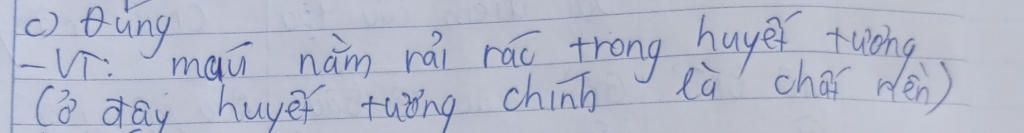 c) Đúng
- Vì: máu nằm rải rác trong huyết tương
(Ở đây huyết tương chính là chất nền)